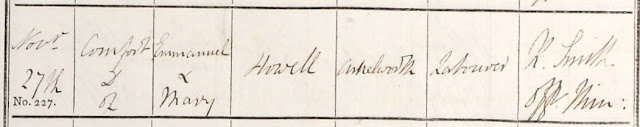 Novr
27th
No. 227.
Comfort
D
of
Emmanuel
&
Mary
Howell
Ashelworth
Labourer
R. Smith
Offg Min: